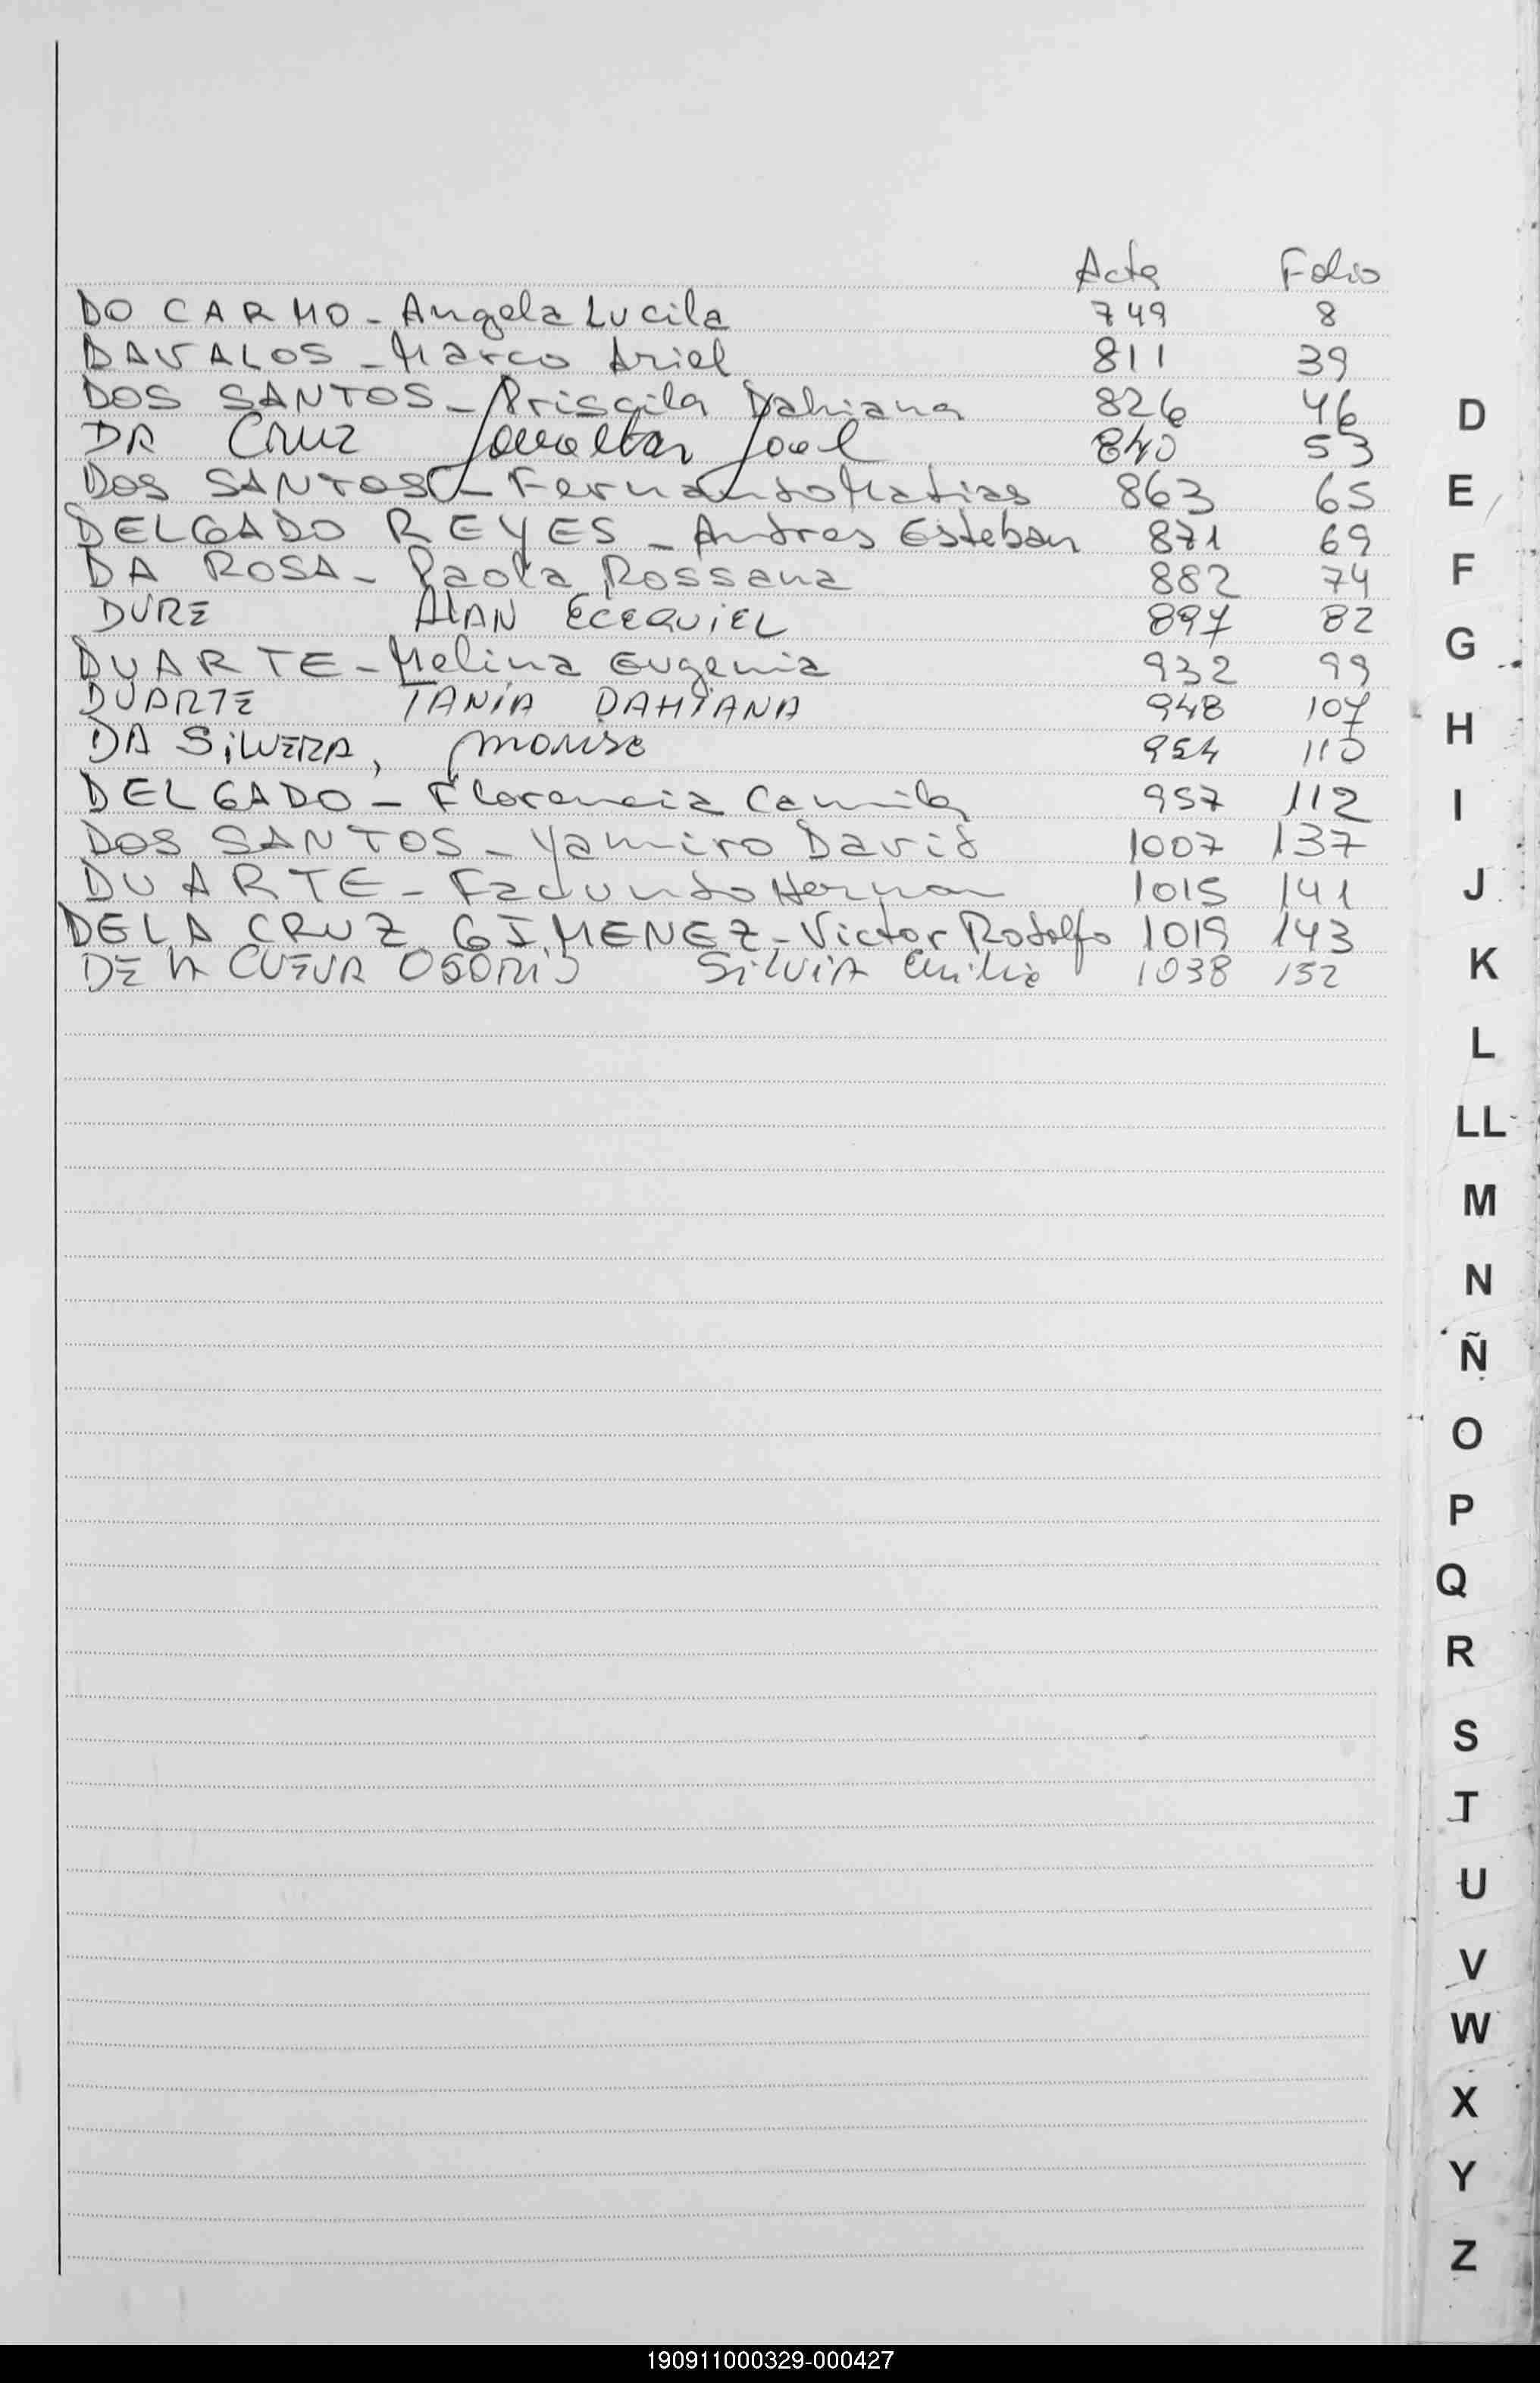 Acta Folio
DO CARMO - Angela Lucila 749 8
DAVALOS - Marco Ariel 811 39
DOS SANTOS - Priscila Dahiana 826 46
DA Cruz Jonathan Joel 840 53
DOS SANTOS - Fernando Matias 863 65
DELGADO REYES - Andres Esteban 871 69
DA ROSA - Paola Rossana 882 74
DURE AlAN ECEQUiEL 897 82
DUARTE - Melina Eugenia 932 99
DUARTE TANiA DAHiANA 948 107
DA SiLVERA, 954 110
DELGADO - Florencia Camila 957 112
DOS SANTOS - Yamiro David 1007 137
DUARTE - Facundo Hernan 1015 141
DE LA CRUZ GIMENEZ - Victor Rodolfo 1019 143
DE LA CUEVA OSORiO SilViA Emilia 1038 152
D
E
F
G
H
I
J
K
L
LL
M
N
Ñ
O
P
Q
R
S
T
U
V
W
X
Y
Z
190911000329-000427